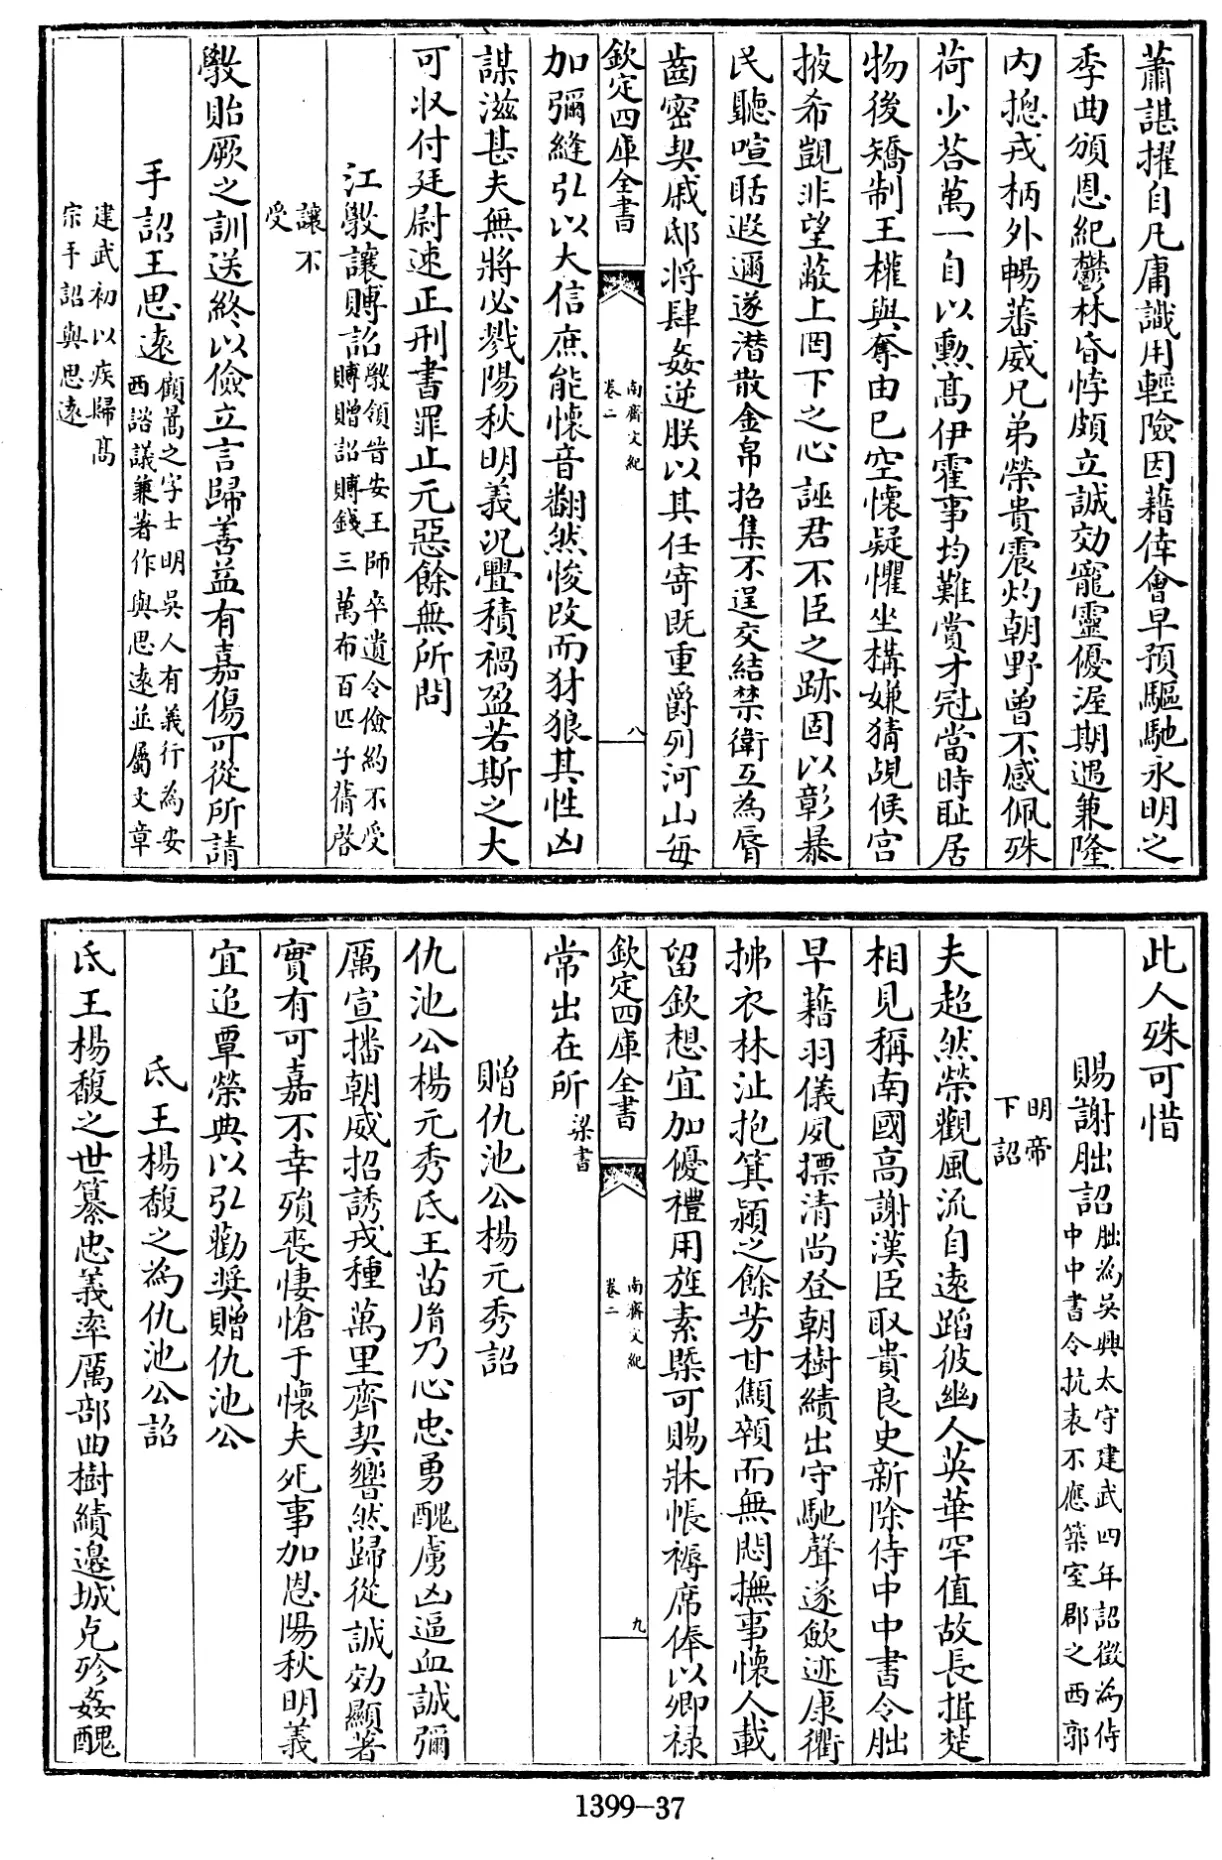 蕭諶擢自凡庸識用輕險因藉倖會早預驅馳永明之
季曲頒恩紀鬱林昏悖頗立誠效寵靈優渥期遇兼隆
内摠戎柄外暢蕃威兄弟榮貴震灼朝野曾不感佩殊
荷少答萬一自以勲髙伊霍事均難賞才冠當時耻居
物後矯制王權與奪由已空懷疑懼坐搆嫌猜覘候宫
掖希覬非望蔽上罔下之心誣君不臣之跡固以彰暴
民聽喧聒遐邇遂潜散金帛招集不逞交結禁衛互為脣
齒密契戚邸将肆姦逆朕以其任寄既重爵列河山每
欽定四庫全書
南齊文紀
卷二
八
加彌縫引以大信庶能懷音翻然悛改而犲狼其性凶
謀滋甚夫無將必戮陽秋明義况舋積禍盈若斯之大
可收付廷尉速正刑書罪止元惡餘無所問
江斆讓賻詔斆領晉安王師卒遺令儉約不受
賻贈詔賻錢三萬布百匹子蒨啓
讓不
受
斆貽厥之訓送終以儉立言歸善益有嘉傷可從所請
手詔王思遠顧暠之字士明吳人有義行為安
西諮議兼著作與思遠並屬文章
建武初以疾歸髙
宗手詔與思遠
此人殊可惜
賜謝朏詔朏為吳興太守建武四年詔徵為侍
中中書令抗表不應築室郡之西郭
明帝
下詔
夫超然榮觀風流自遠蹈彼幽人英華罕值故長揖楚
相見稱南國高謝漢臣取貴良史新除侍中中書令朏
早藉羽儀夙摽清尚登朝樹績出守馳聲遂歛迹康衢
拂衣林沚抱箕潁之餘芳甘顦顇而無悶撫事懷人載
留欽想宜加優禮用旌素槩可賜牀帳褥席俸以卿禄
欽定四庫全書
南齊文紀
卷二
九
常出在所梁書
贈仇池公楊元秀詔
仇池公楊元秀氐王苗胤乃心忠勇醜虜凶逼血誠彌
厲宣播朝威招誘戎種萬里齊契響然歸從誠効顯著
實有可嘉不幸殞喪悽愴于懷夫死事加恩陽秋明義
宜追覃榮典以引勸奨贈仇池公
氐王楊馥之為仇池公詔
氐王楊馥之世纂忠義率厲部曲樹績邉城克殄姦醜
1399—37